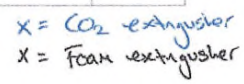 x = CO2 extingusher
x = Foam extingusher